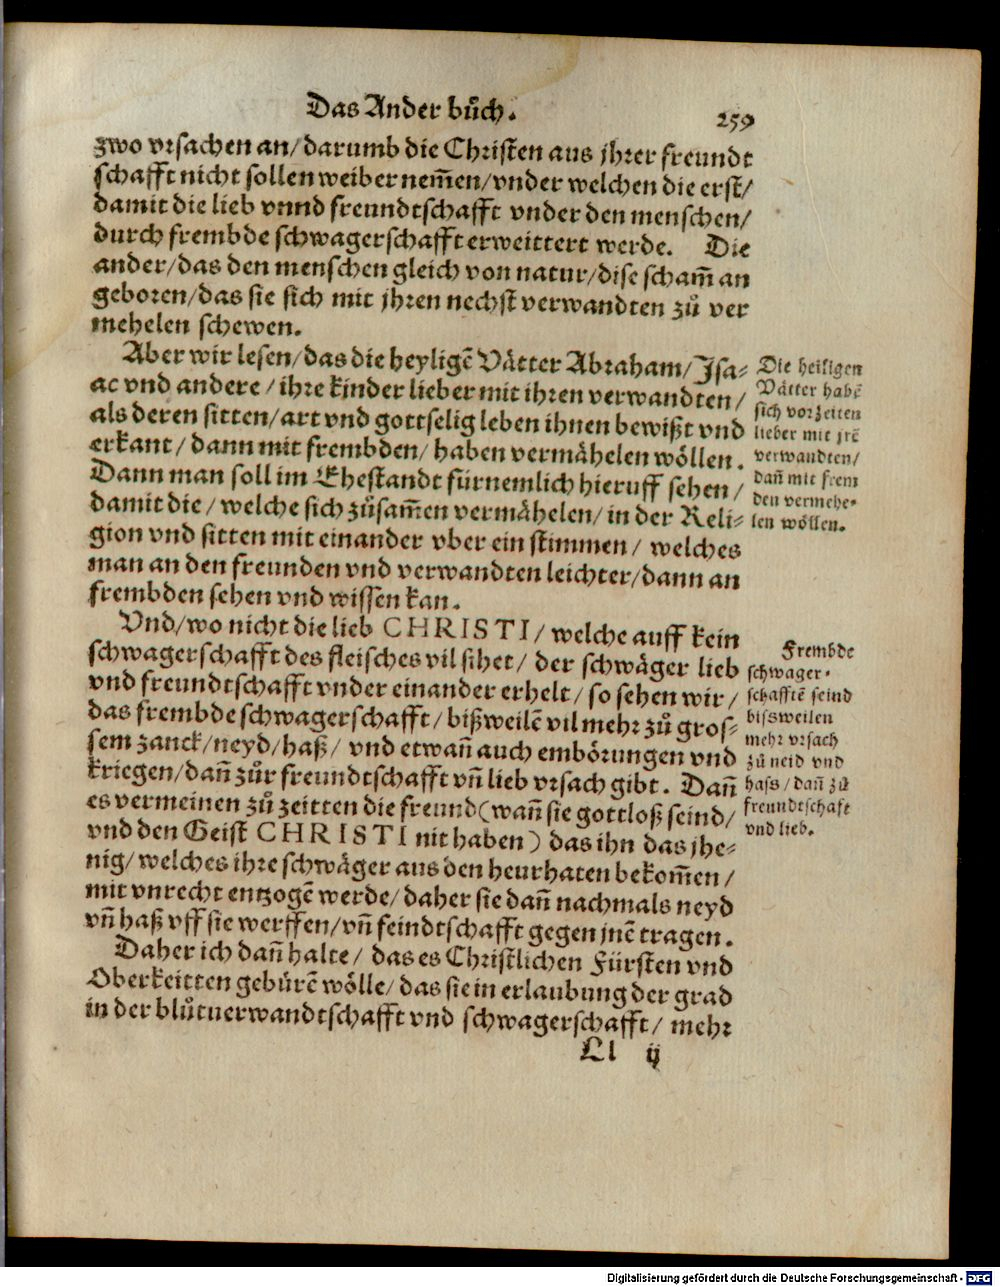 Das Ander bůch.
259
zwo vrsachen an/darumb die Christen aus jhrer freundt
schafft nicht sollen weiber nem̃en/vnder welchen die erst/
damit die lieb vnnd freundtschafft vnder den menschen/
durch frembde schwagerschafft erweittert werde. Die
ander/das den menschen gleich von natur/dise scham̃ an
geboren/das sie sich mit jhren nechst verwandten zů ver
mehelen schewen.
Aber wir lesen/das die heyligẽ Våtter Abraham/Isa⸗
ac vnd andere/ihre kinder lieber mit ihren verwandten/
als deren sitten/art vnd gottselig leben ihnen bewißt vnd
erkant/dann mit frembden/haben vermåhelen wöllen.
Dann man soll im Ehestandt fürnemlich hieruff sehen/
damit die/welche sich zůsam̃en vermåhelen/in der Reli⸗
gion vnd sitten mit einander vber ein stimmen/welches
man an den freunden vnd verwandten leichter/dann an
frembden sehen vnd wissen kan.
Die heiligen
Våtter habẽ
sich vorzeiten
lieber mit jrẽ
verwandten/
dañ mit frem
den vermehe⸗
len wöllen.
Vnd/wo nicht die lieb CHRISTI/welche auff kein
schwagerschafft des fleisches vil sihet/der schwåger lieb
vnd freundtschafft vnder einander erhelt/so sehen wir/
das frembde schwagerschafft/bißweilẽ vil mehr zů gros⸗
sem zanck/neyd/haß/vnd etwañ auch embörungen vnd
kriegen/dañ zůr freundtschafft vñ lieb vrsach gibt. Dañ
es vermeinen zů zeitten die freund(wañ sie gottloß seind/
vnd den Geist CHRISTI nit haben) das ihn das jhe⸗
nig/welches ihre schwåger aus den heurhaten bekom̃en/
mit vnrecht entzogẽ werde/daher sie dañ nachmals neyd
vñ haß vff sie werffen/vñ feindtschafft gegen jnẽ tragen.
Frembde
schwager⸗
schafftẽ seind
bissweilen
mehr vrsach
zů neid vnd
hass/dañ zů
freundtschaft
vnd lieb.
Daher ich dañ halte/das es Christlichen Fürsten vnd
Oberkeitten gebürẽ wölle/das sie in erlaubung der grad
in der blůtuerwandtschafft vnd schwagerschafft/mehr
Ll ij
Digitalisierung gefördert durch die Deutsche Forschungsgemeinschaft - DFG